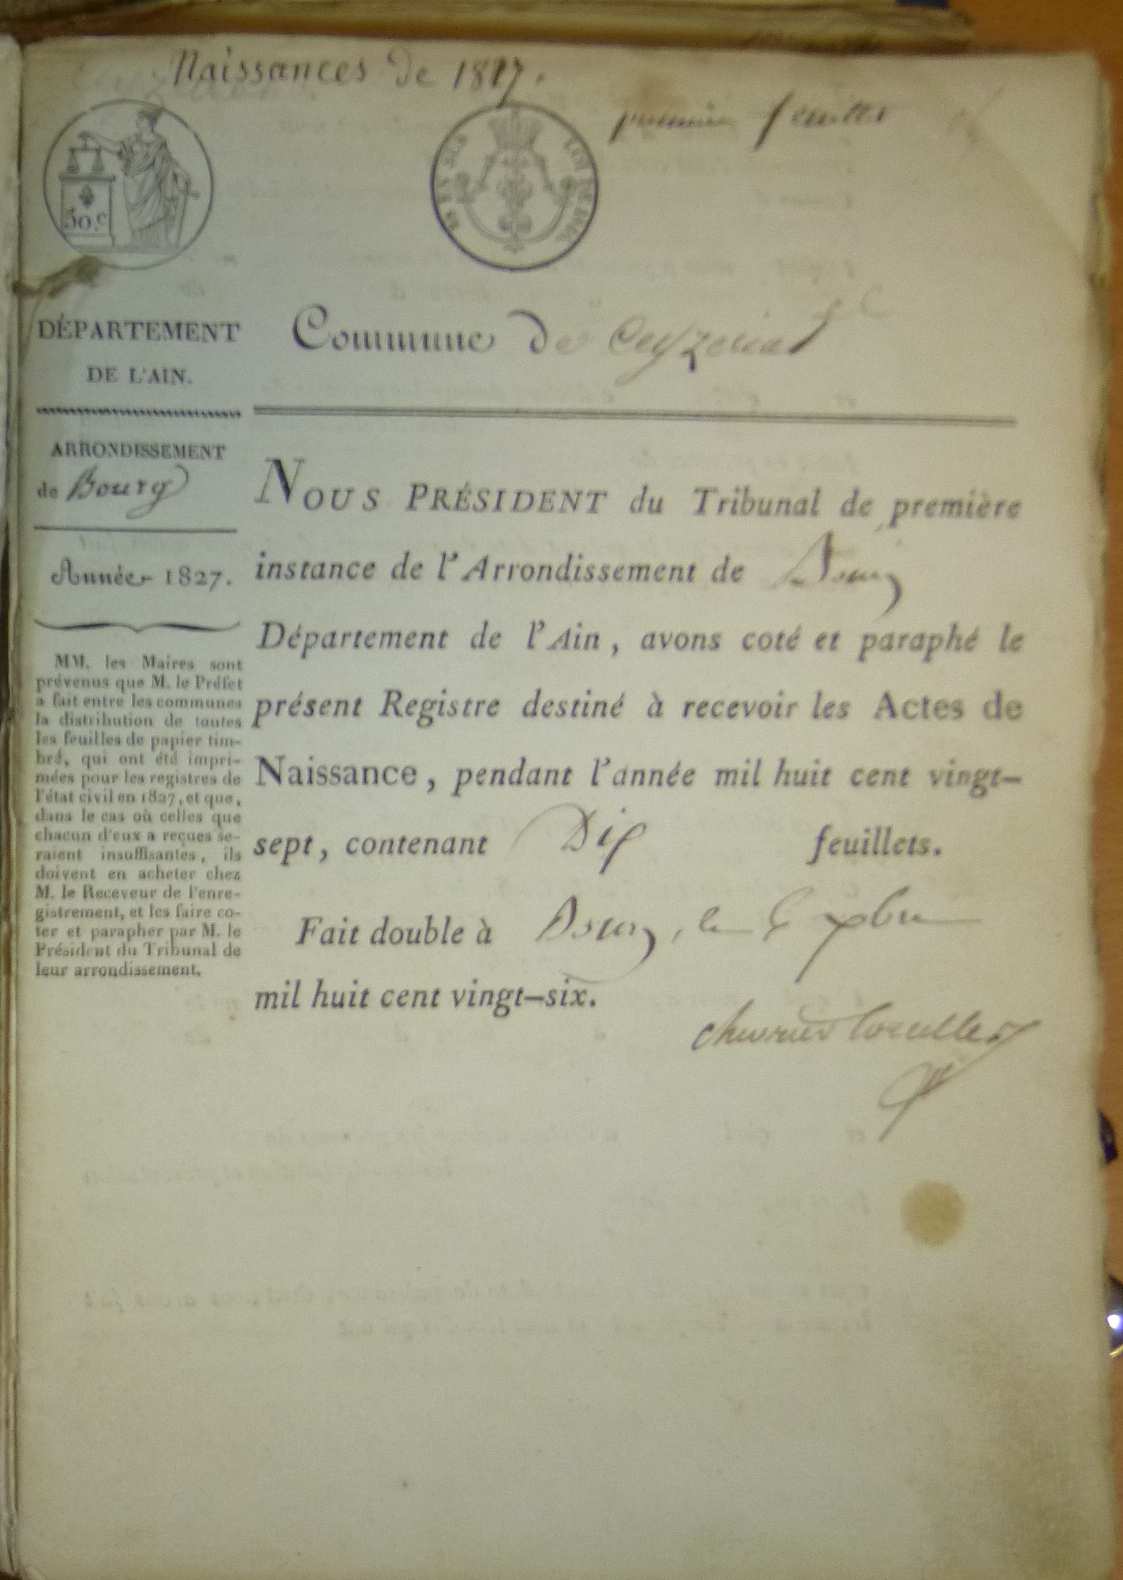 Naissances de 1827.
premier feuillet
50.c
DÉPARTEMENT
DE L'AIN.
Commune de Ceyzeriat
ARRONDISSEMENT
de Bourg
Année 1827.
MM. les Maires sont
prévenus que M. le Préfet
a fait entre les communes
la distribution de toutes
les feuilles de papier tim-
bré, qui ont été impri-
mées pour les registres de
l'état civil en 1827, et que,
dans le cas où celles que
chacun d'eux a reçues se-
raient insuffisantes, ils
doivent en acheter chez
M. le Receveur de l'enre-
gistrement, et les faire co-
ter et parapher par M. le
Président du Tribunal de
leur arrondissement.
NOUS PRÉSIDENT du Tribunal de première
instance de l'Arrondissement de Bourg
Département de l'Ain, avons coté et paraphé le
présent Registre destiné à recevoir les Actes de
Naissance, pendant l'année mil huit cent vingt-
sept, contenant Dix feuillets.
Fait double à Bourg, le 6 xbre
mil huit cent vingt-six.